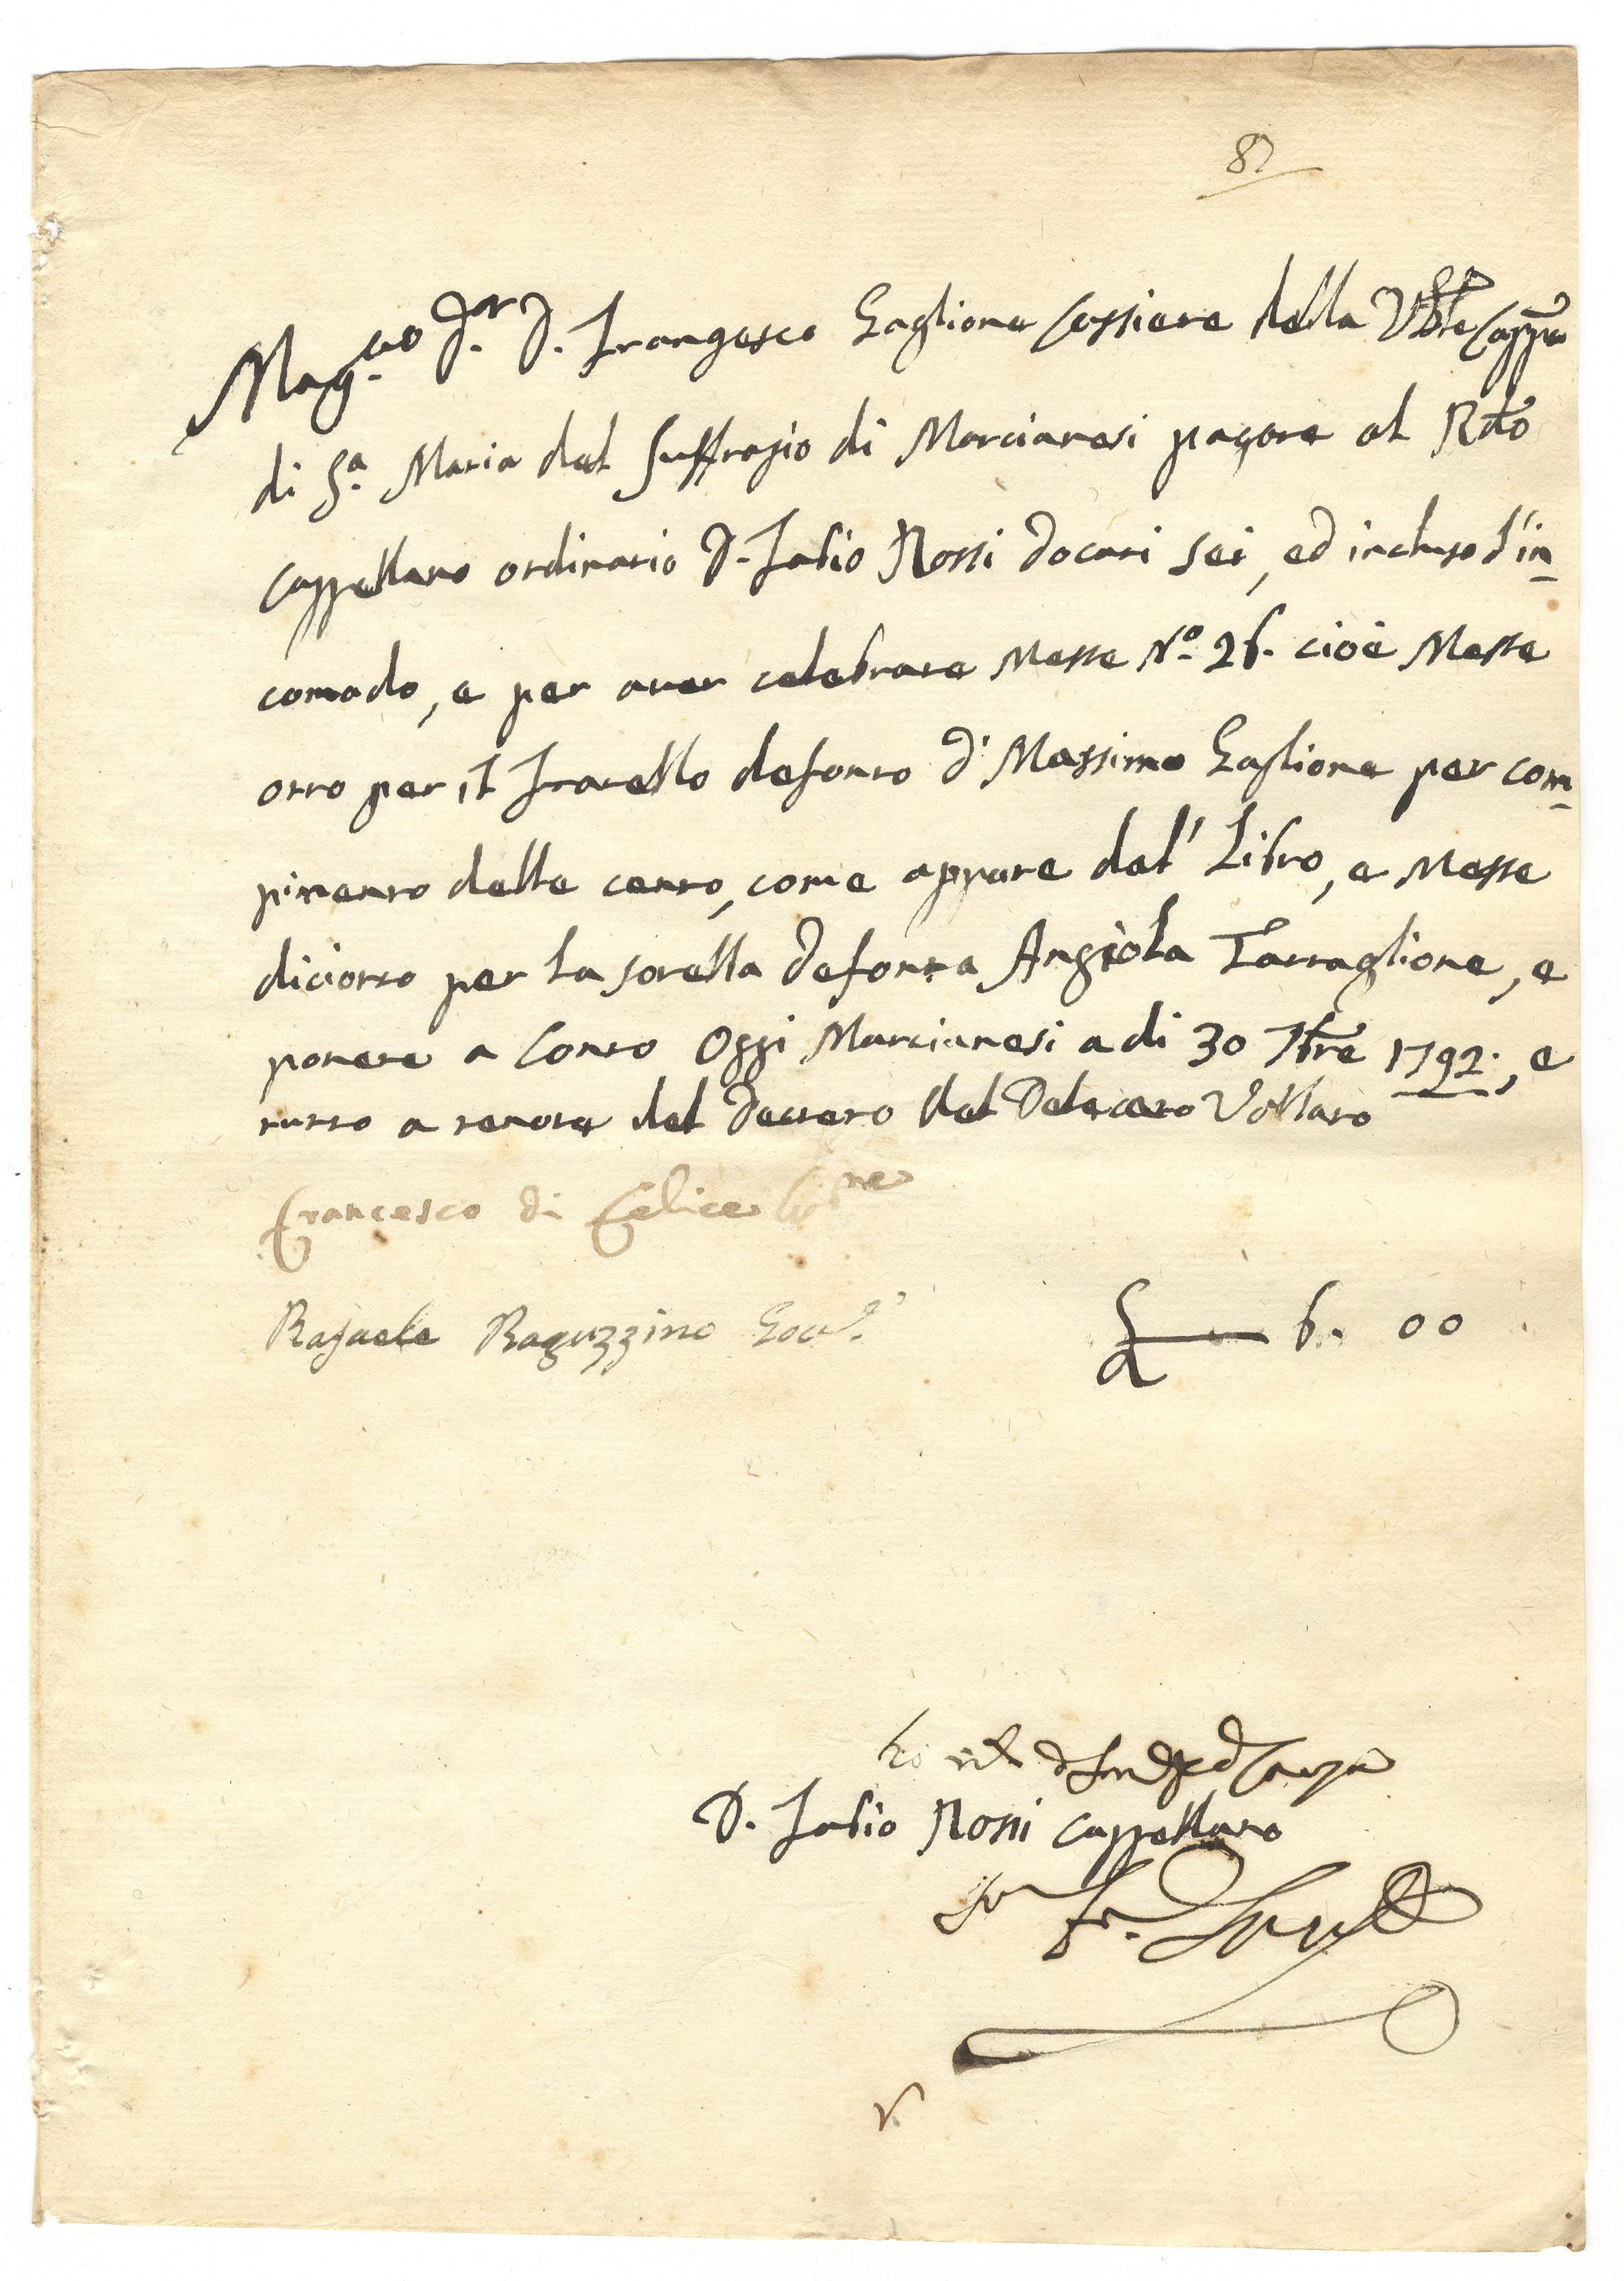 87
Mag.co D.r D. Frangesco Gaglione Cassiere della Vble Cappa
di S.a Maria del Suffragio di Marcianesi pagate al Rdo
Cappellano ordinario D. Fabio Rossi docati sei, ed incluso l'in=
comodo, e per aver celebrate Messe N.o 26. cioè Messe
otto per il Fratello defonto d' Massimo Gaglione per com=
pimento delle cento, come appare dal' Libro, e Messe
diciotto per la sorella defonta Angiola Tartaglione, e
ponete a Conto Oggi Marcianesi a di 30 7bre 1792., e
tutto a tenore del Decreto del Delecato Vollaro
Francesco di Felice
Rafaele Raguzzino Gov.e
6. 00
D. Fabio Rossi Cappellano